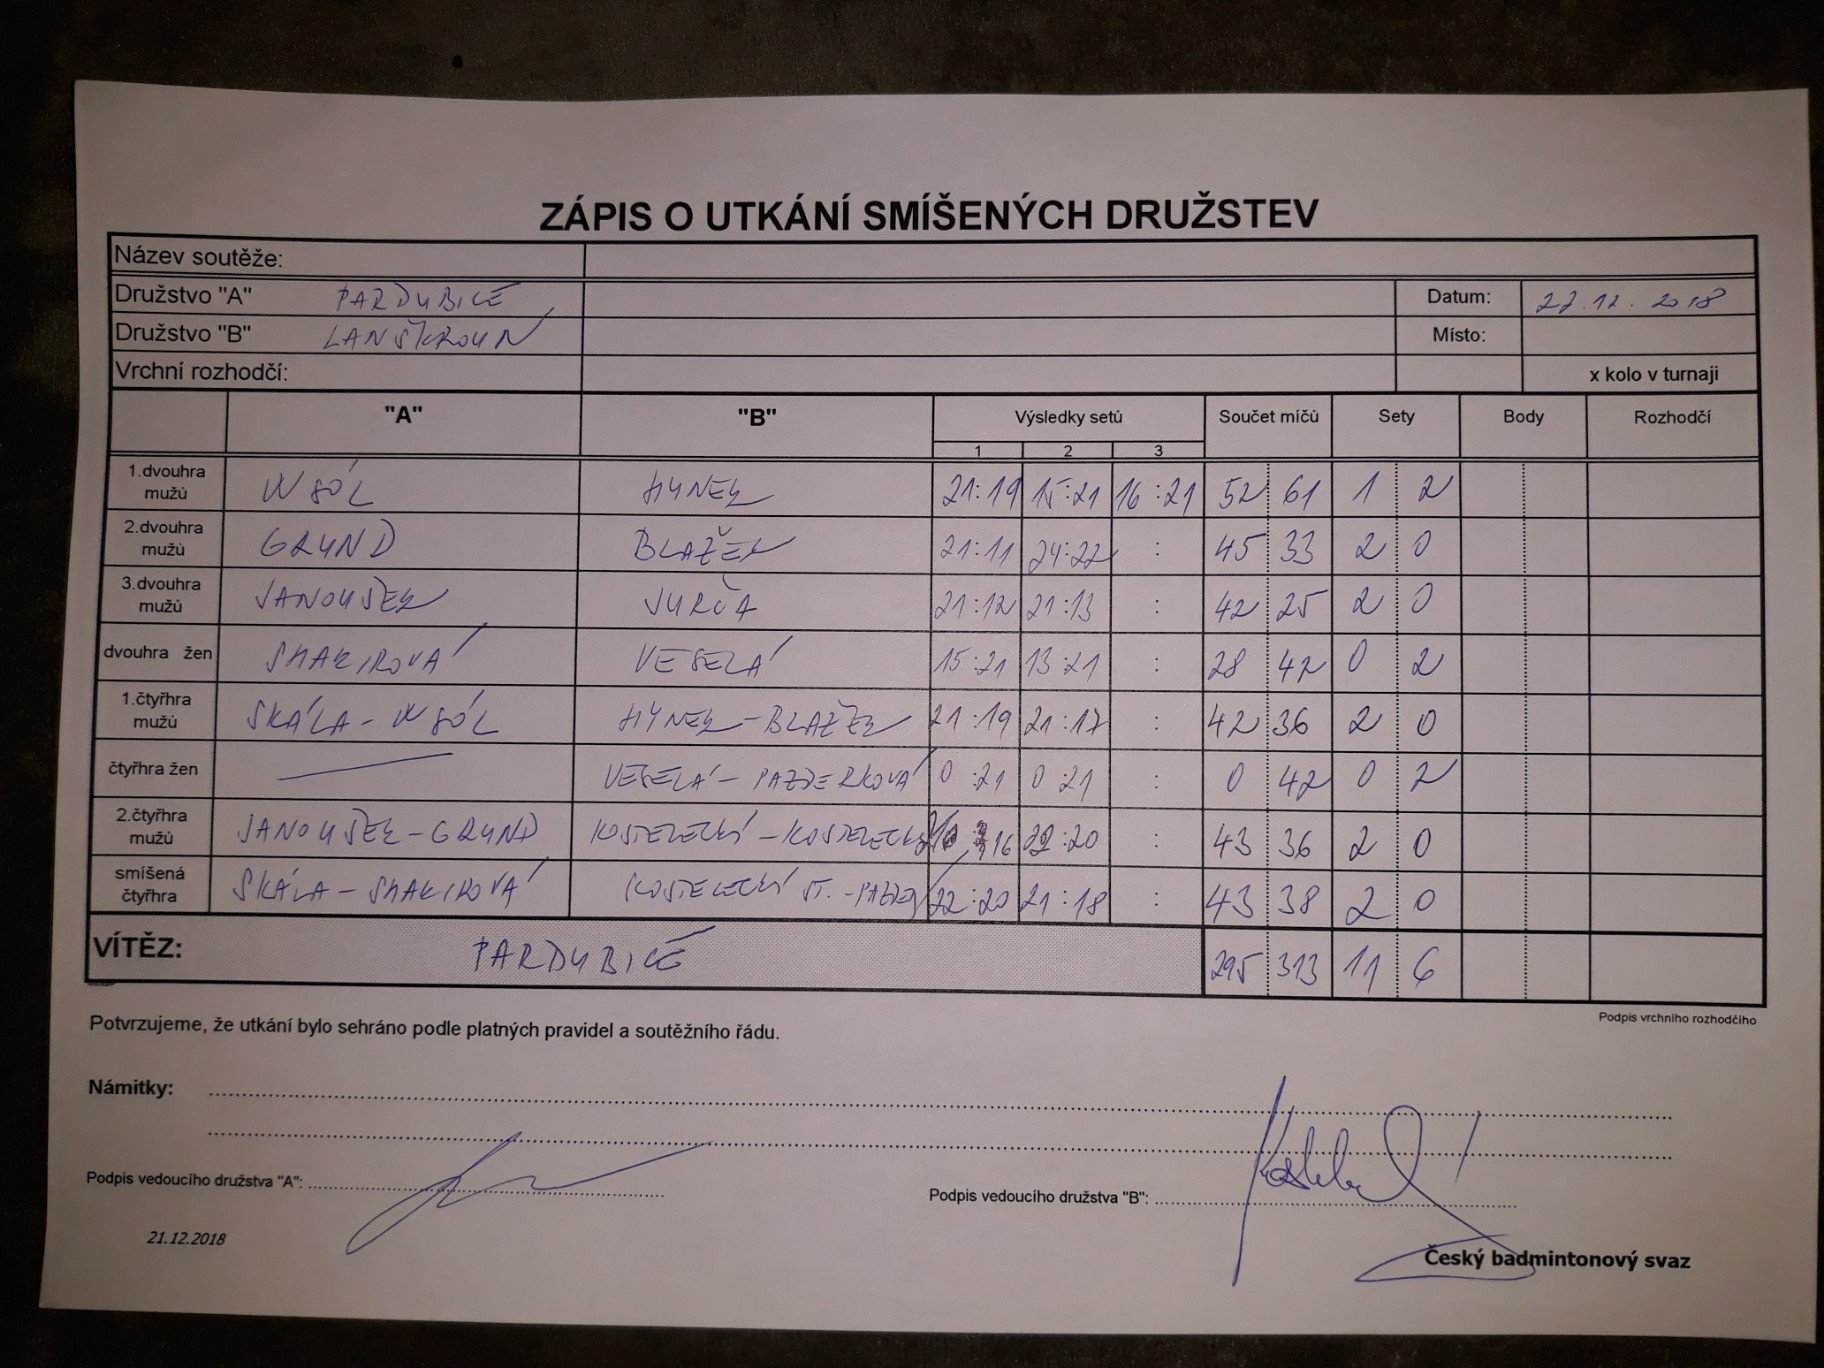 ZÁPIS O UTKÁNÍ SMÍŠENÝCH DRUŽSTEV
Název soutěže:
Družstvo "A" PARDUBICE Datum: 22.12.2018
Družstvo "B" LANŠKROUN Místo:
Vrchní rozhodčí: x kolo v turnaji
"A" "B" Výsledky setů Součet míčů Sety Body Rozhodčí
1 2 3
1.dvouhra mužů WSÓL HYNEK 21:19 15:21 16:21 52 61 1 2
2.dvouhra mužů GRUND BLAŽEK 21:11 24:22 : 45 33 2 0
3.dvouhra mužů JANOUŠEK JURČA 21:12 21:13 : 42 25 2 0
dvouhra žen SHAKIROVÁ VESELÁ 15:21 13:21 : 28 42 0 2
1.čtyřhra mužů SKÁLA - WSÓL HYNEK - BLAŽEK 21:19 21:17 : 42 36 2 0
čtyřhra žen — VESELÁ - PAZDERKOVÁ 0:21 0:21 : 0 42 0 2
2.čtyřhra mužů JANOUŠEK - GRUND KOSTELECKÝ - 22:20 : 43 36 2 0
smíšená čtyřhra SKÁLA - SHAKIROVÁ KOSTELECKÝ ST. - 22:20 21:18 : 43 38 2 0
VÍTĚZ: PARDUBICE 295 313 11 6
Podpis vrchního rozhodčího
Potvrzujeme, že utkání bylo sehráno podle platných pravidel a soutěžního řádu.
Námitky:
Podpis vedoucího družstva "A": Podpis vedoucího družstva "B":
21.12.2018
Český badmintonový svaz